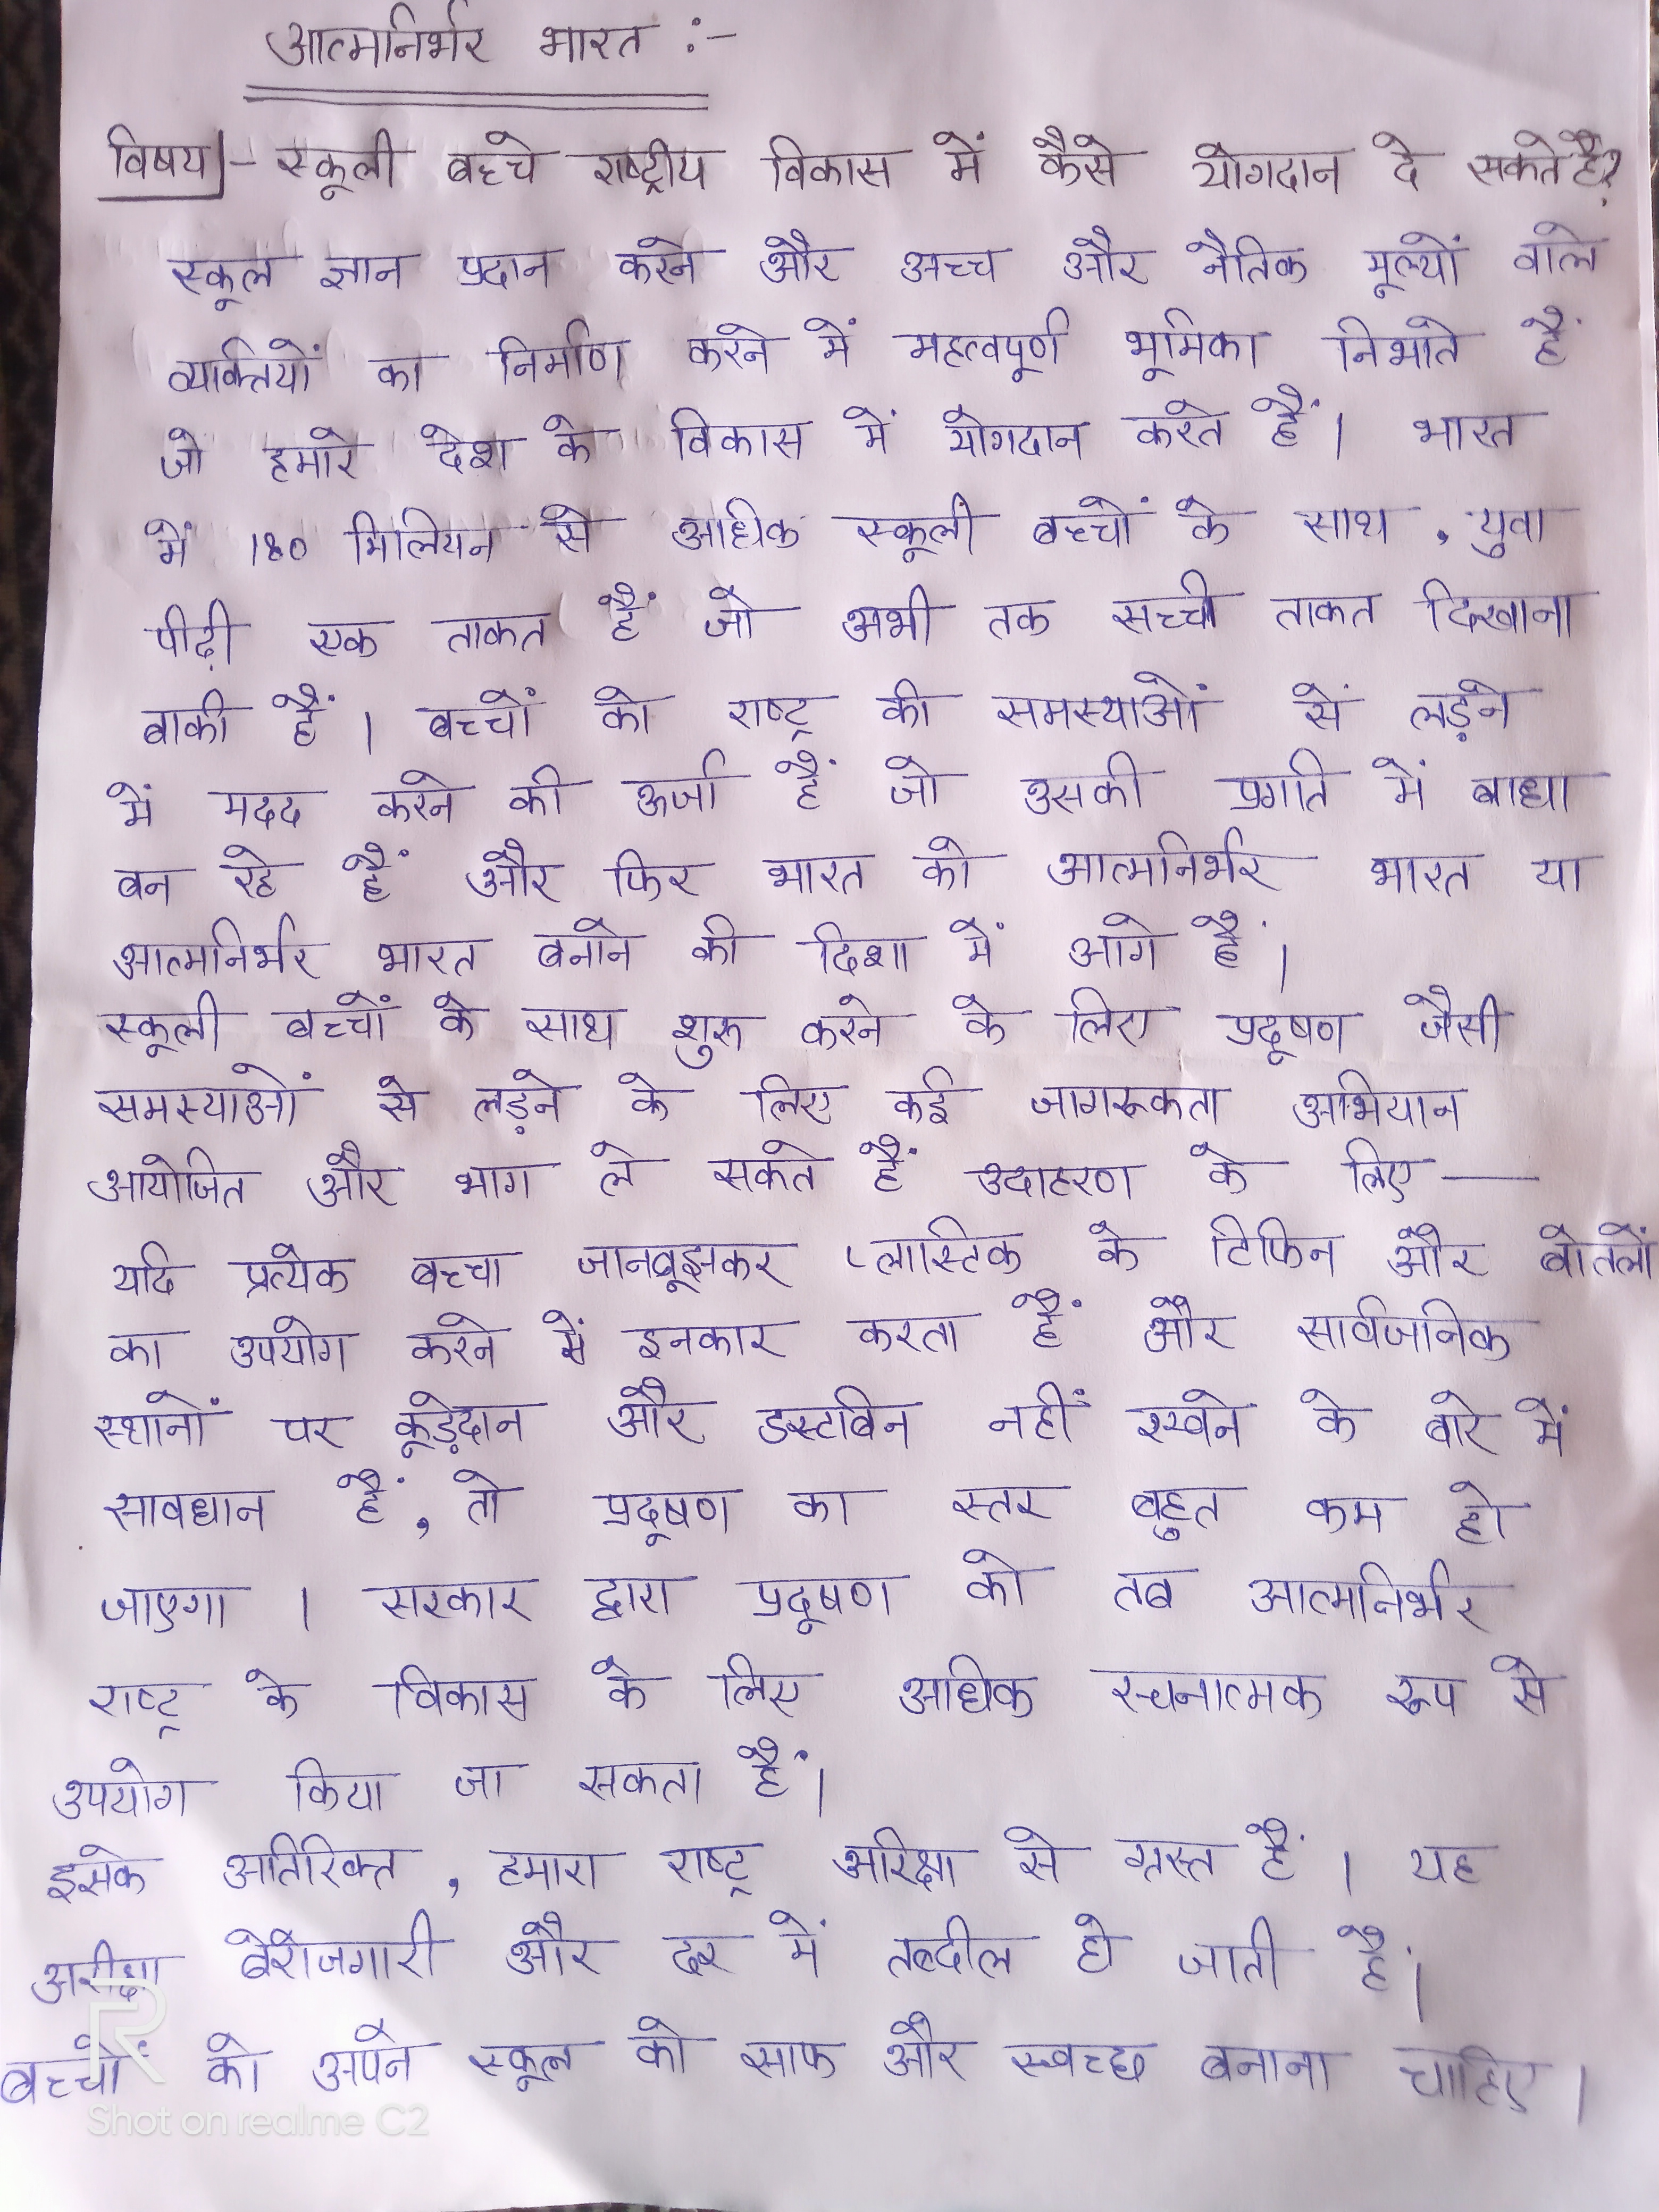 आत्मनिर्भर भारत :-
विषय - स्कूली बच्चे राष्ट्रीय विकास में कैसे योगदान दे सकते हैं?
स्कूल ज्ञान प्रदान करने और अच्च और नैतिक मूल्यों वाले
व्यक्तियों का निर्माण करने में महत्वपूर्ण भूमिका निभाते हैं
जो हमारे देश के विकास में योगदान करते हैं । भारत
में 180 मिलियन से अधिक स्कूली बच्चों के साथ , युवा
पीढ़ी एक ताकत हैं जो अभी तक सच्ची ताकत दिखाना
बाकी हैं । बच्चों को राष्ट्र की समस्याओं सें लड़ने
में मदद करने की ऊर्जा हैं जो उसकी प्रगति में बाधा
बन रहे हैं और फिर भारत को आत्मनिर्भर भारत या
आत्मनिर्भर भारत बनाने की दिशा में आगे हैं ।
स्कूली बच्चों के साथ शुरू करने के लिए प्रदूषण जैसी
समस्याओं से लड़ने के लिए कई जागरूकता अभियान
आयोजित और भाग ले सकते हैं उदाहरण के लिए —
यदि प्रत्येक बच्चा जानबूझकर प्लास्टिक के टिफिन और बोतलों
का उपयोग करने में इनकार करता हैं और सार्वजनिक
स्थानों पर कूड़ेदान और डस्टबिन नहीं रखने के बारे में
सावधान हैं , तो प्रदूषण का स्तर बहुत कम हो
जाएगा । सरकार द्वारा प्रदूषण को तब आत्मनिर्भर
राष्ट्र के विकास के लिए अधिक रचनात्मक रूप से
उपयोग किया जा सकता हैं ।
इसके अतिरिक्त , हमारा राष्ट्र अरिक्षा से ग्रस्त हैं । यह
बेरोजगारी और दर में तब्दील हो जाती हैं ।
बच्चों को अपने स्कूल को साफ और स्वच्छ बनाना चाहिए ।
Shot on realme C2